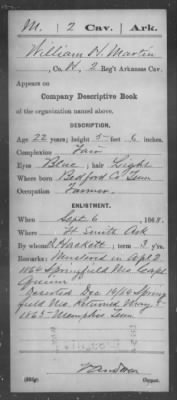 M. | 2 Cav. | Ark.
William H. Martin
, Co. H, 2 Reg't Arkansas Cav.
Appears on
Company Descriptive Book
of the organization named above.
DESCRIPTION.
Age 22 years; height 5 feet 6 inches.
Complexion Fair
Eyes Blue; hair Light
Where born Bedford Co Tenn
Occupation Farmer
ENLISTMENT.
When Sept 6, 1863.
Where Ft Smith Ark
By whom Hackett; term 3 y'rs.
Remarks: Mustered in Sept 2
1864 Springfield Mo Capt
Deserted Dec 14/64 Spring
field Mo Returned May
1865 Memphis Tenn
Copyist.